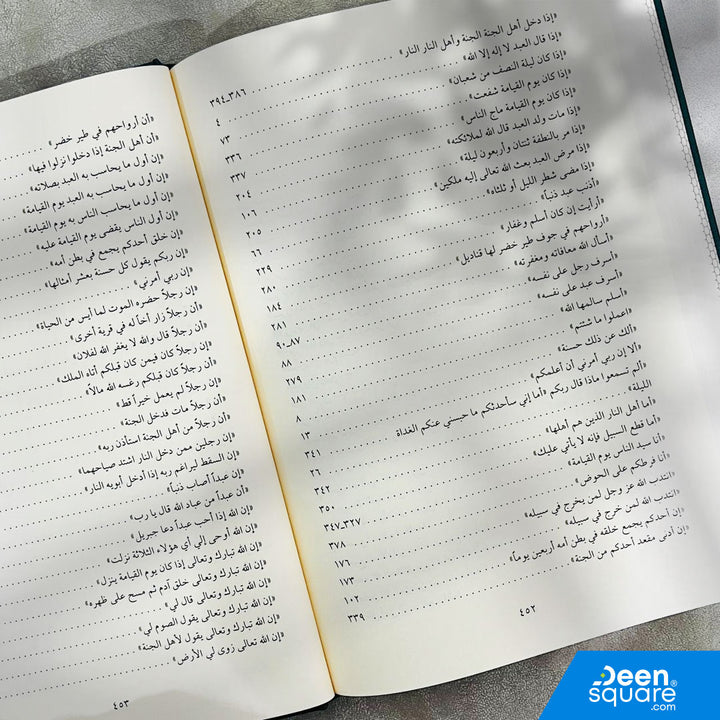 «إذا دخل أهل الجنة الجنة وأهل النار النار» ٣٨٦_٣٩٤
«إذا قال العبد لا إله إلا الله» ٤
«إذا كان ليلة النصف من شعبان» ٧٣
«إذا كان يوم القيامة شفعت» ٣٣٦
«إذا كان يوم القيامة ماج الناس» ٣٣٧
«إذا مات ولد العبد قال الله لملائكته» ٢٠٤
«إذا مر بالنطفة ثنتان وأربعون ليلة» ١٠٦
«إذا مرض العبد بعث الله تعالى إليه ملكين» ٢٠٥
«إذا مضى شطر الليل أو ثلثاه» ٦٦
«أذنب عبد ذنباً» ٢٢٩
«أرأيت إن كان أسلم وغفار» ٢٨٠
«أرواحهم في جوف طير خضر لها قناديل» ١٨٤
«أسأل الله معافاته ومغفرته» ٢٨١
«أسرف رجل على نفسه» ٨٧_٩٠
«أسرف عبد على نفسه» ٨٨
«أسلم سالمها الله» ٢٧٩
«اعملوا ما شئتم» ١٨١
«ألك عن ذلك حسنة» ٨
«ألا إن ربي أمرني أن أعلمكم» ١٣
«ألم تسمعوا ماذا قال ربكم «أما إني سأحدثكم ما حبسني عنكم الغداة ٣٤١
الليلة» ٢٦
«أما أهل النار الذين هم أهلها» ٣٤٢
«أما قطع السبيل فإنه لا يأتي عليك» ٣٥٠
«أنا سيد الناس يوم القيامة» ٣٢٧_٣٤٧
«أنا فرطكم على الحوض» ٣٧٨
«انتدب الله عز وجل لمن يخرج في سبيله» ١٧٦
«انتدب الله لمن خرج في سبيله» ١٧٣
«إن أحدكم يجمع خلقه في بطن أمه أربعين يوماً» ١٠٢
«إن أدنى مقعد أحدكم من الجنة» ٣٣٩
٤٥٢
«أن أرواحهم في طير خضر»
«أن أهل الجنة إذا دخلوا نزلوا فيها»
«إن أول ما يحاسب به العبد بصلاته»
«إن أول ما يحاسب به العبد يوم القيامة»
«إن أول ما يحاسب الناس به يوم القيامة»
«إن أول الناس يقضى يوم القيامة عليه»
«إن خلق أحدكم يجمع في بطن أمه»
«إن ربكم يقول كل حسنة بعشر أمثالها»
«إن ربي أمرني»
«إن رجلاً حضره الموت لما أيس من الحياة»
«أن رجلاً زار أخاً له في قرية أخرى»
«أن رجلاً قال والله لا يغفر الله لفلان»
«إن رجلاً كان فيمن كان قبلكم أتاه الملك»
«أن رجلاً كان قبلكم رغسه الله مالاً»
«إن رجلاً لم يعمل خيراً قط»
«أن رجلاً مات فدخل الجنة»
«أن رجلاً من أهل الجنة استأذن ربه»
«إن رجلين ممن دخل النار اشتد صياحهما»
«إن السقط ليراغم ربه إذا أدخل أبويه النار»
«إن عبداً أصاب ذنباً»
«أن عبداً من عباد الله قال يا رب»
«إن الله إذا أحب عبداً دعا جبريل»
«إن الله أوحى إلي أي هؤلاء الثلاثة نزلت»
«إن الله تبارك وتعالى إذا كان يوم القيامة ينزل»
«إن الله تبارك وتعالى خلق آدم ثم مسح على ظهره»
«إن الله تبارك وتعالى قال لي»
«إن الله تبارك وتعالى يقول الصوم لي»
«إن الله تبارك وتعالى يقول لأهل الجنة»
«إن الله تعالى زوى لي الأرض»
٤٥٣
Deen
square®
.com